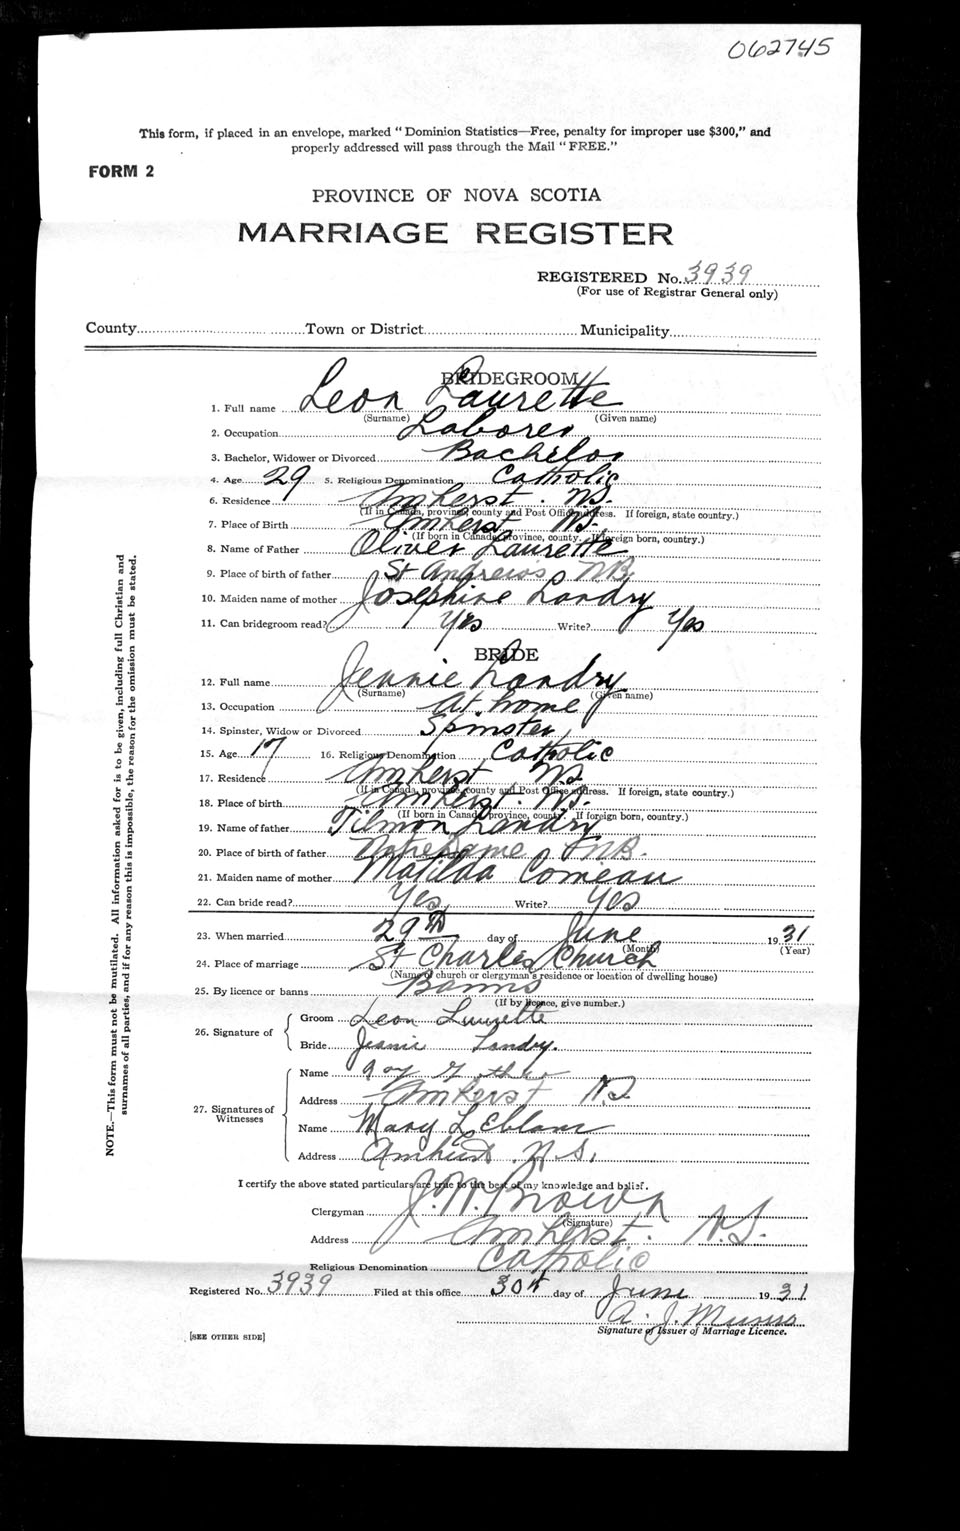 062745
This form, if placed in an envelope, marked "Dominion Statistics—Free, penalty for improper use $300," and
properly addressed will pass through the Mail "FREE."
FORM 2
PROVINCE OF NOVA SCOTIA
MARRIAGE REGISTER
REGISTERED No. 3939
(For use of Registrar General only)
County Town or District Municipality
BRIDEGROOM
1. Full name Leon Laurette
(Surname) (Given name)
2. Occupation Laborer
3. Bachelor, Widower or Divorced Bachelor
4. Age 29 5. Religious Denomination Catholic
6. Residence Amherst. N.S.
(If in Canada, province, county and Post Office address. If foreign, state country.)
7. Place of Birth Amherst N.S.
(If born in Canada, province, county. If foreign born, country.)
8. Name of Father Oliver Laurette
9. Place of birth of father St Andrews NB
10. Maiden name of mother Josephine Landry
11. Can bridegroom read? Yes Write? Yes
BRIDE
12. Full name Jeannie Landry
(Surname) (Given name)
13. Occupation at home
14. Spinster, Widow or Divorced Spinster
15. Age 17 16. Religious Denomination Catholic
17. Residence Amherst N.S
(If in Canada, province, county and Post Office address. If foreign, state country.)
18. Place of birth Amherst. N.S.
(If born in Canada, province, county. If foreign born, country.)
19. Name of father Tilmon Landry
20. Place of birth of father NB.
21. Maiden name of mother Matilda Comeau
22. Can bride read? Yes Write? Yes
23. When married 29th day of June 1931
(Month) (Year)
24. Place of marriage St Charles Church
(Name of church or clergyman's residence or location of dwelling house)
25. By licence or banns Banns
(If by licence, give number.)
26. Signature of
Groom Leon Laurette
Bride Jeanie Landry.
27. Signatures of Witnesses
Name
Address Amherst N.S
Name Mary LeBlanc
Address Amherst N.S.
I certify the above stated particulars are true to the best of my knowledge and belief.
Clergyman J. W. Brown
(Signature)
Address Amherst. N.S.
Religious Denomination Catholic
Registered No. 3939 Filed at this office 30th day of June 1931
A. J.
Signature of Issuer of Marriage Licence.
[SEE OTHER SIDE]
NOTE.—This form must not be mutilated. All information asked for is to be given, including full Christian and
surnames of all parties, and if for any reason this is impossible, the reason for the omission must be stated.